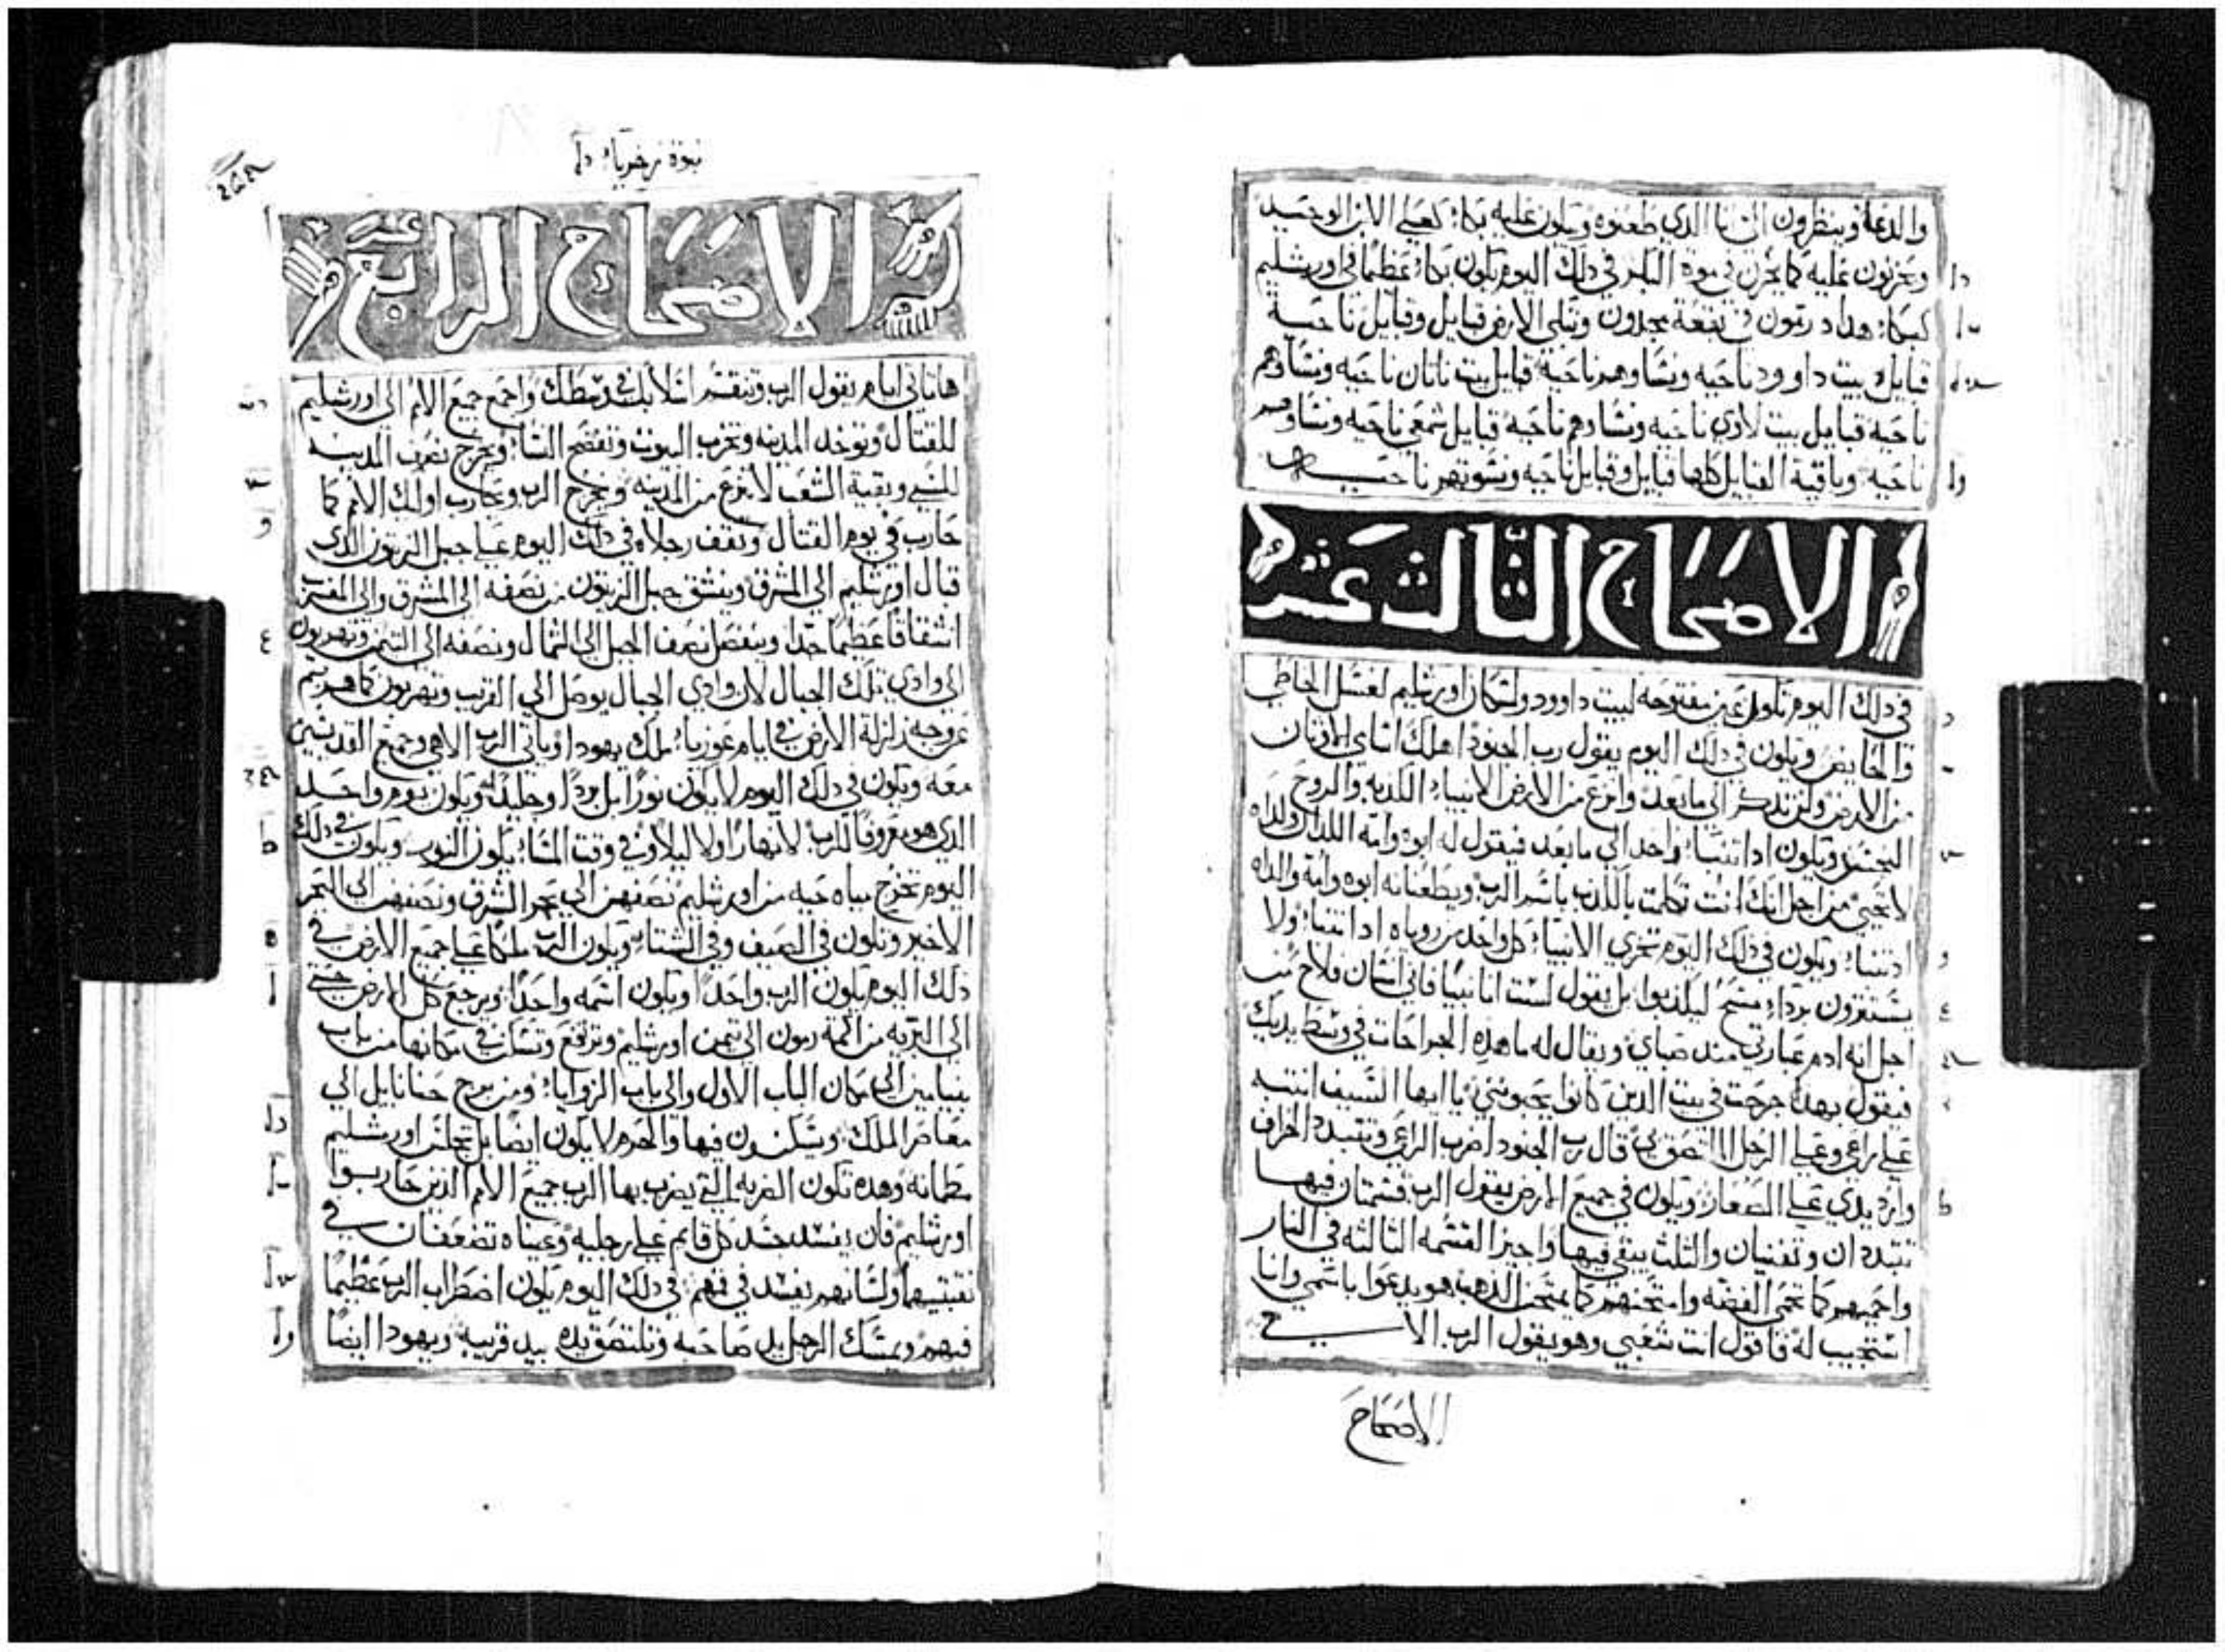 والدعة وينظرون الى انا الذي طعنوه ويكون عليه بكاء كعلى الابن الوحيد
ويحزنون عليه كما يحزن في موة البكر في ذلك اليوم يكون بكاء عظيما في اورشليم
كبكاء هداد رمون في بقعة مجدون وتبكي الارض قبايل وقبايل ناحية
قبايل بيت داوود ناحيه ونساوهم ناحية قبايل بيت ناتان ناحيه ونساوهم
ناحيه قبايل بيت لاوي ناحيه ونساوهم ناحيه قبايل شمعي ناحيه ونساوهم
ناحيه وباقية القبايل كلها قبايل وقبايل ناحيه ونسوتهم ناحيه
الاصحاح الثالث عشر
في ذلك اليوم تكون عين مفتوحه لبيت داوود ولسكان اورشليم لغسل الخاطي
والحايض ويكون في ذلك اليوم يقول رب الجنود اهلك اسامي الاوثان
من الارض ولن تذكر الى ما بعد وانزع من الارض الانبياء الكدبه والروح
النجس ويكون ادا تنبا واحد الى ما بعد فيقول له ابوه وامه اللذان ولداه
لا تحيى من اجل انك انت تكلمت بالكدب باسم الرب ويطعنانه ابوه وامه والداه
ادا تنبا ويكون في ذلك اليوم تخزى الانبياء كل واحد من روياه ادا تنبا ولا
يستترون برداء مسح ليكدبوا بل يقول لست انا نبيا فاني انسان فلاح من
اجل انه ادم عبارتي منذ صباي ويقال له ما هذه الجراحات في وسط يديك
فيقول بهده جرحت في بيت الدين كانوا يحبونني يا ايها السيف انتبه
على راعي وعلى الرجل الملتصق بي قال رب الجنود اضرب الراعي وتتبدد الخراف
وارد يدي على الصغار ويكون في جميع الارض يقول الرب قسمتان فيها
تتبددان وتفنيان والثلث يبقى فيها واجيز القسمه الثالثه في النار
واحميهم كما تحمى الفضه وامتحنهم كما يمتحن الدهب هو يدعوا باسمي وانا
استجيب له فاقول انت شعبي وهو يقول الرب الاهي
الاصحاح
نبوة زخريا
الاصحاح الرابع عشر
ها تاتي ايام يقول الرب وتنقسم اسلابك في وسطك واجمع جميع الامم الى اورشليم
للقتال وتوخد المدينه وتخرب البيوت وتفضح النساء ويخرج نصف المدينه
للسبي وبقية الشعب لا ينزع من المدينه ويخرج الرب ويحارب اوليك الامم كما
حارب في يوم القتال وتقف رجلاه في ذلك اليوم على جبل الزيتون الذي
قبال اورشليم الى المشرق وينشق جبل الزيتون من نصفه الى المشرق والى المغرب
انشقاقا عظيما جدا وينفصل نصف الجبل الى الشمال ونصفه الى التيمن وتهربون
الى وادي تلك الجبال لان وادي الجبال يوصل الى القريب وتهربون كما هربتم
عن وجه زلزلة الارض في ايام عوزيا ملك يهودا وياتي الرب الاهي وجميع القديسين
معه ويكون في ذلك اليوم لا يكون نورا بل بردا وجليدا ويكون يوم واحد
الذي هو معروفا للرب لا نهارا ولا ليلا وفي وقت المساء يكون النور ويكون في ذلك
اليوم تخرج مياه حيه من اورشليم نصفهن الى بحر الشرق ونصفهن الى البحر
الاخير وتكون في الصيف وفي الشتاء ويكون الرب ملكا على جميع الارض في
ذلك اليوم يكون الرب واحدا ويكون اسمه واحدا ويرجع كل الارض حتى
الى البريه من اكمة رمون الى تيمن اورشليم وترتفع وتسكن في مكانها من باب
بنيامين الى مكان الباب الاول والى باب الزوايا ومن برج حنانايل الى
معاصر الملك ويسكنون فيها والحرم لا يكون ايضا بل تجلس اورشليم
مطمانه وهده تكون الضربه التي يضرب بها الرب جميع الامم الذين حاربوا
اورشليم فان يفسد جسد كل قايم على رجليه وعيناه تضعفان في
نقبتيهما ولسانهم يفسد في فمهم في ذلك اليوم يكون اضطراب الرب عظيما
فيهم ويمسك الرجل يد صاحبه وتلتصق يده بيد قريبه ويهودا ايضا